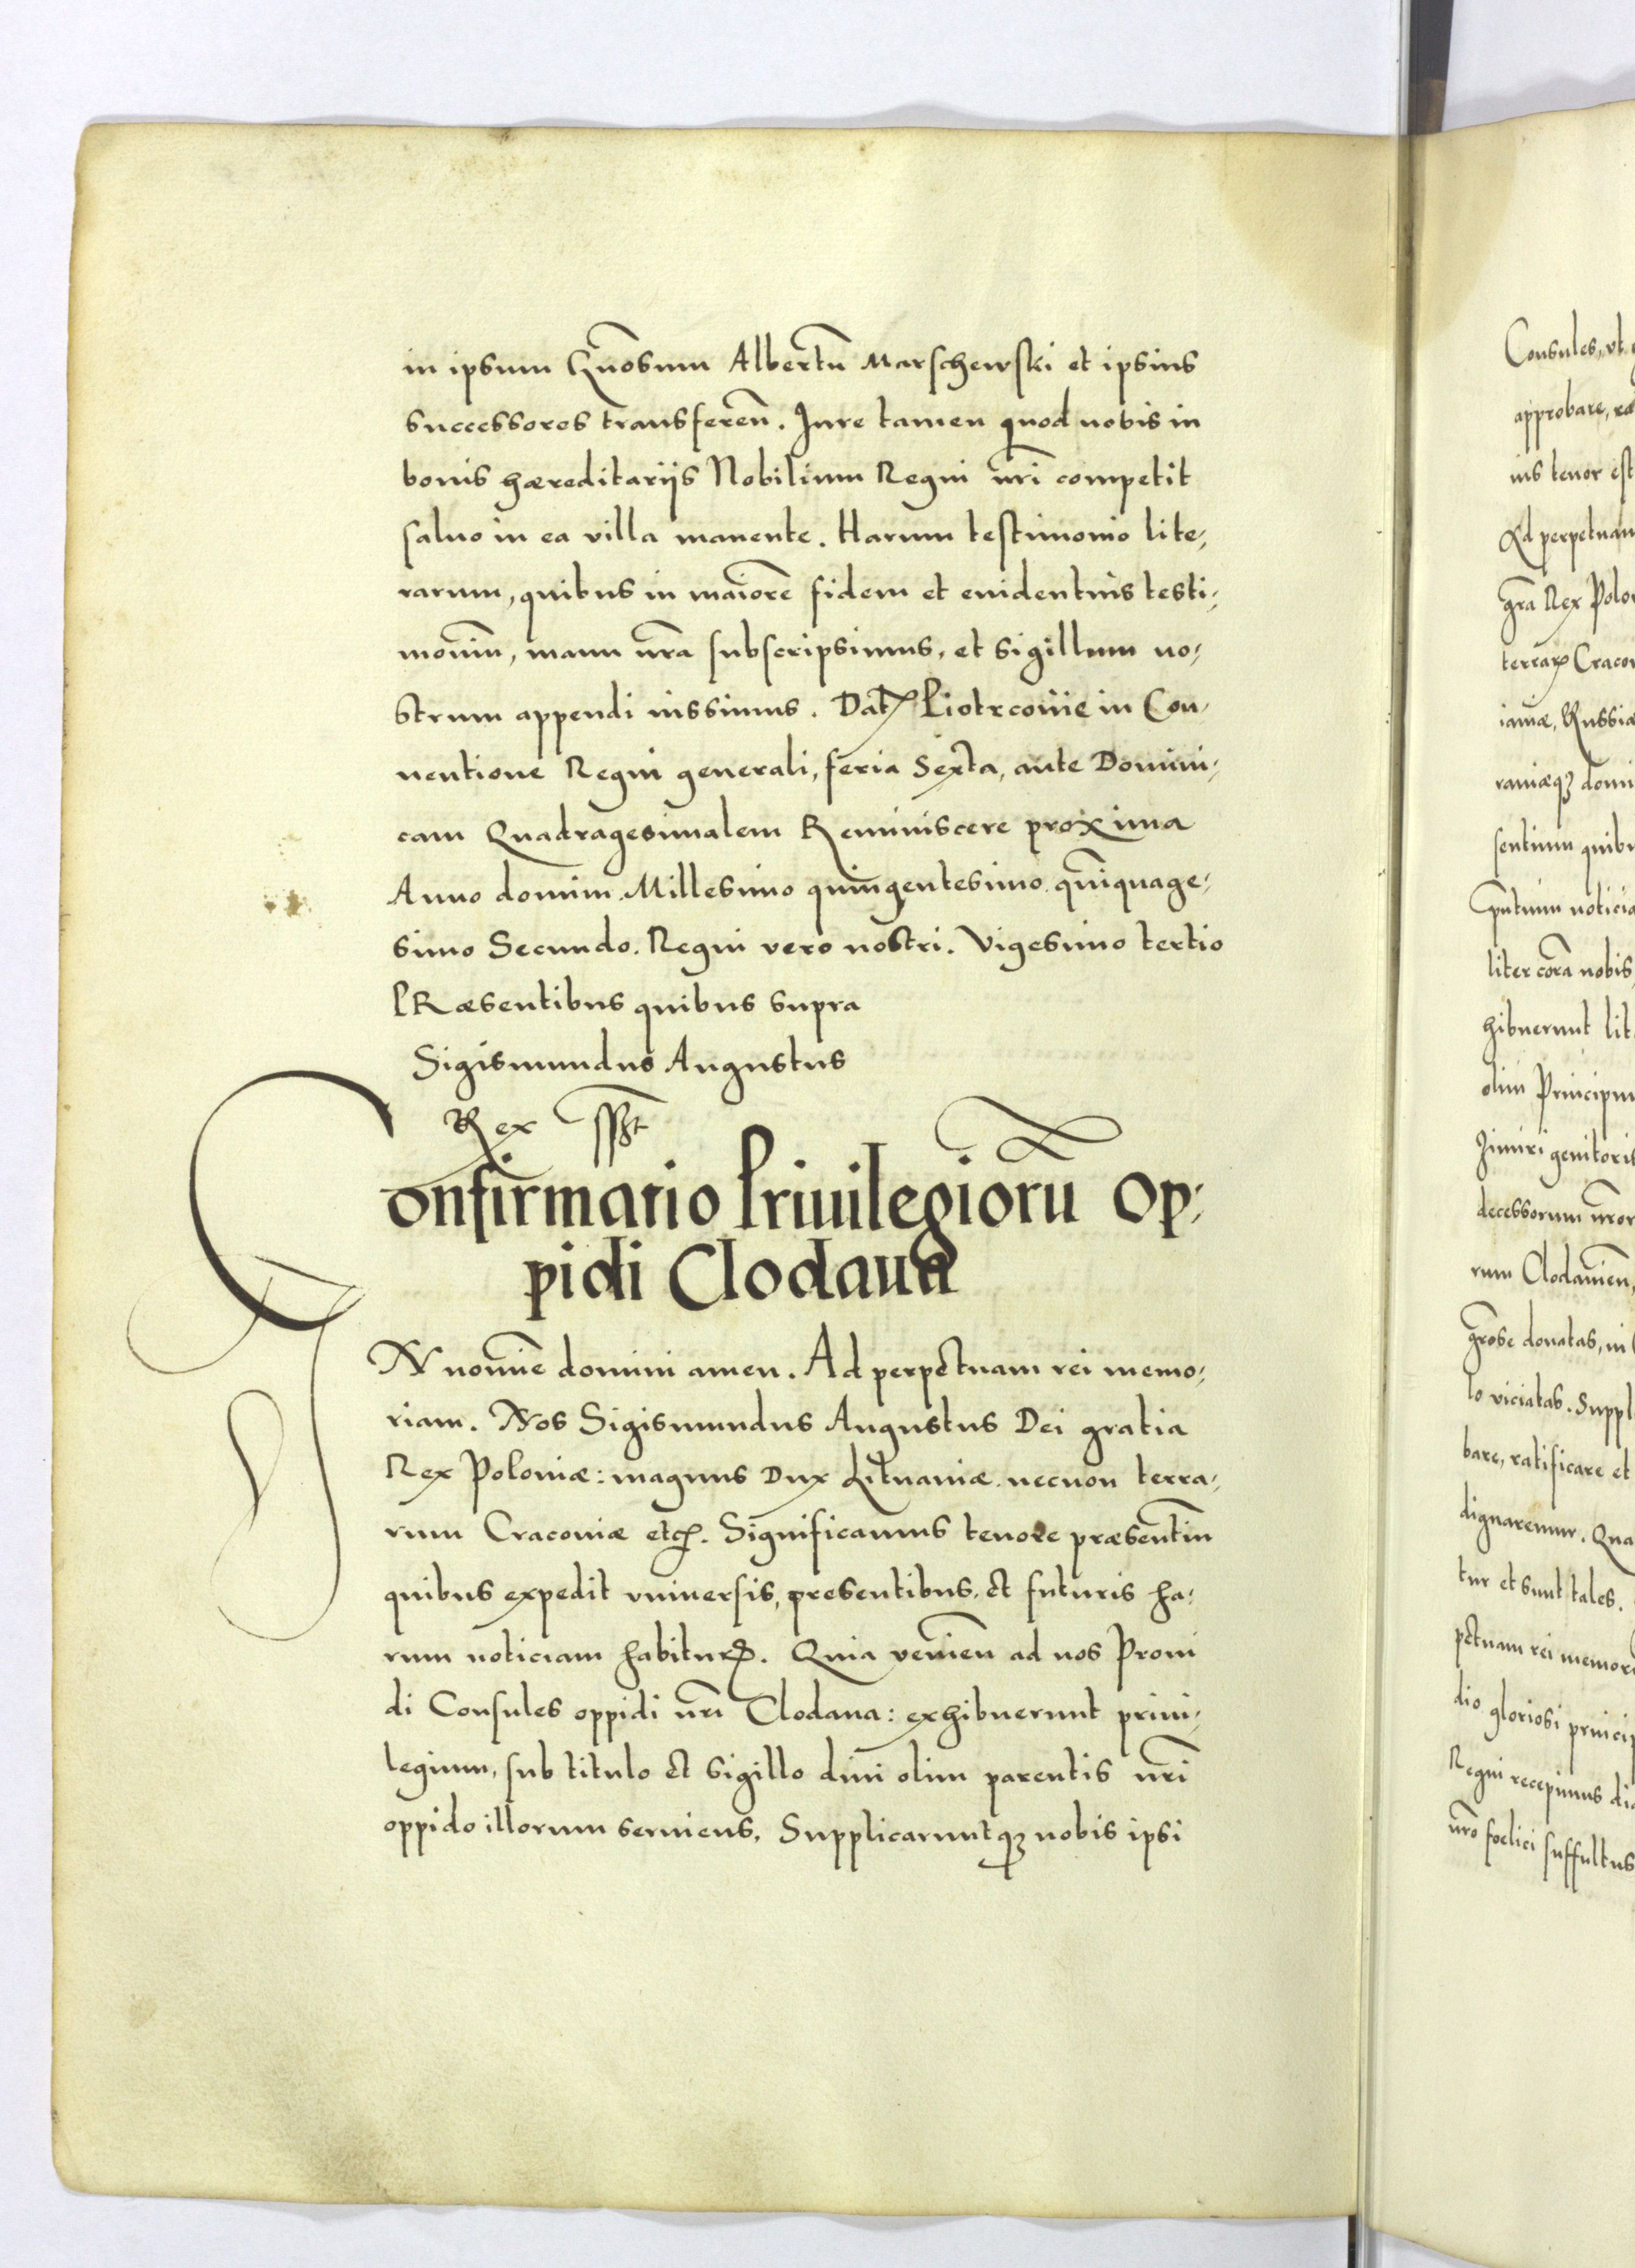 in ipsum Gn̄osum Albertū Marschewski et ipsius
successores transferen̄. Jure tamen quod nobis in
bonis hæreditarijs Nobilium Regni nr̄i competit
saluo in ea villa manente. Harum testimonio lite,
rarum, quibus in maiorē fidem et euidentius testi,
moniū, manu nr̄a subscripsimus, et sigillum no,
strum appendi iussimus. Dat. Piotrcoviē in Con,
uentione Regni generali, feria Sexta, ante Domini,
cam Quadragesimalem Reminiscere proxima
Anno domini Millesimo quingentesimo quīquage,
simo Secundo. Regni vero nostri. Vigesimo tertio
PRæsentibus quibus supra
Sigismundus Augustus
Rex sst
Confirmatio Priuilegiorū Op,
pidi Clodaua
JN nomīe domini amen. Ad perpetuam rei memo,
riam. Nos Sigismundus Augustus Dei gratia
Rex Poloniæ: magnus Dux Lituaniæ. necnon terra,
rum Cracouiæ etc. Significamus tenore præsentiū
quibus expedit vniuersis, presentibus, et futuris ha,
rum noticiam habituꝝ. Quia venien̄ ad nos Proui
di Consules oppidi nr̄i Clodaua: exhibuerunt priui,
legium, sub titulo et sigillo diui olim parentis nr̄i
oppido illorum seruiens, Supplicaruntqꝫ nobis ipsi
Consules, vt
approbare, ra
ius tenor est
Ad perpetuam
gr̄a Rex Polo
terraꝝ Craco
iauiæ, Russiæ
raniæqꝫ domi
sentium quibu
noticia
liter corā nobis
hibuerunt lit
olim Principu
zimiri genitoris
decessorum nr̄or
rum Clodauien̄,
gr̄ose donatas, in
lo viciatas. Suppl
bare, ratificare et
dignaremur. Qua
tur et sunt tales.
petuam rei memor
dio gloriosi princip
Regni recepimus di
nr̄o foelici suffultus